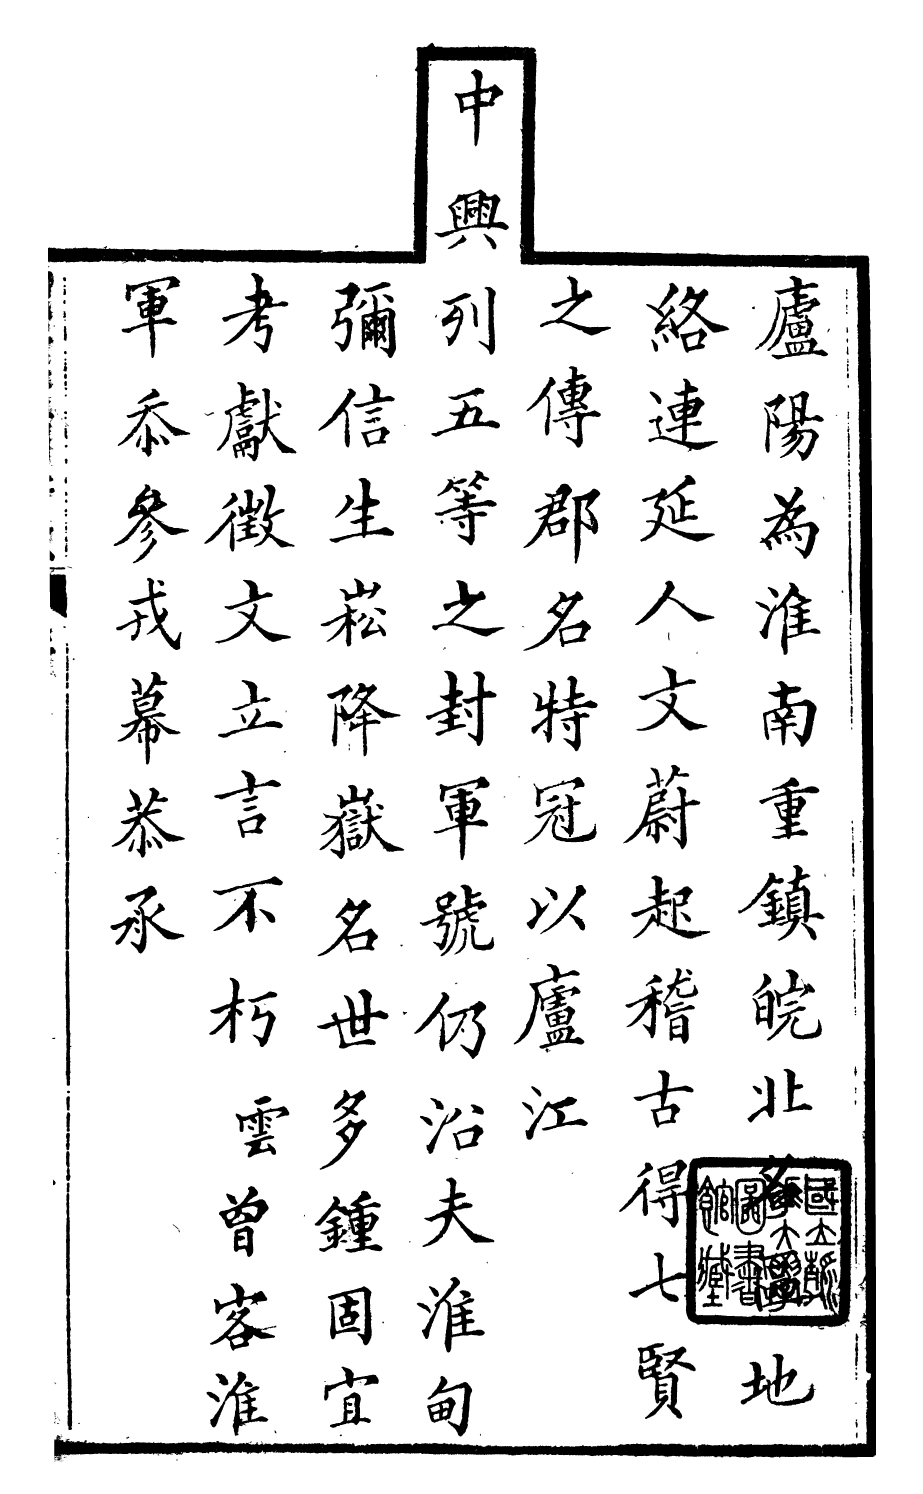 廬陽為淮南重鎮皖北地
絡連延人文蔚起稽古得七賢
之傳郡名特冠以廬江
中興列五等之封軍號仍沿夫淮甸
彌信生崧降嶽名世多鍾固宜
考獻徵文立言不朽雲曾客淮
軍忝參戎幕恭承
國立清
華大學
圖書
館藏